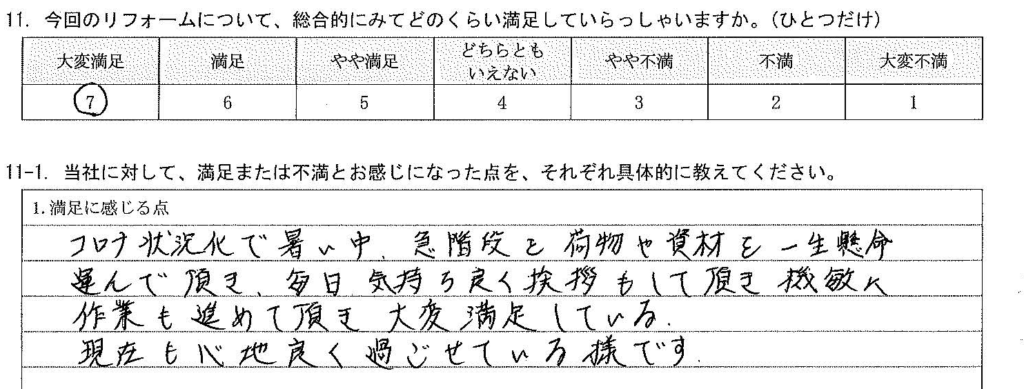 11. 今回のリフォームについて、総合的にみてどのくらい満足していらっしゃいますか。(ひとつだけ)
大変満足 満足 やや満足 どちらとも いえない やや不満 不満 大変不満
7 6 5 4 3 2 1
11-1. 当社に対して、満足または不満とお感じになった点を、それぞれ具体的に教えてください。
1.満足に感じる点
コロナ状況化で暑い中、急階段を荷物や資材を一生懸命
運んで頂き、毎日気持ち良く挨拶もして頂き機敏に
作業も進めて頂き大変満足している。
現在も心地良く過ごせている様です。